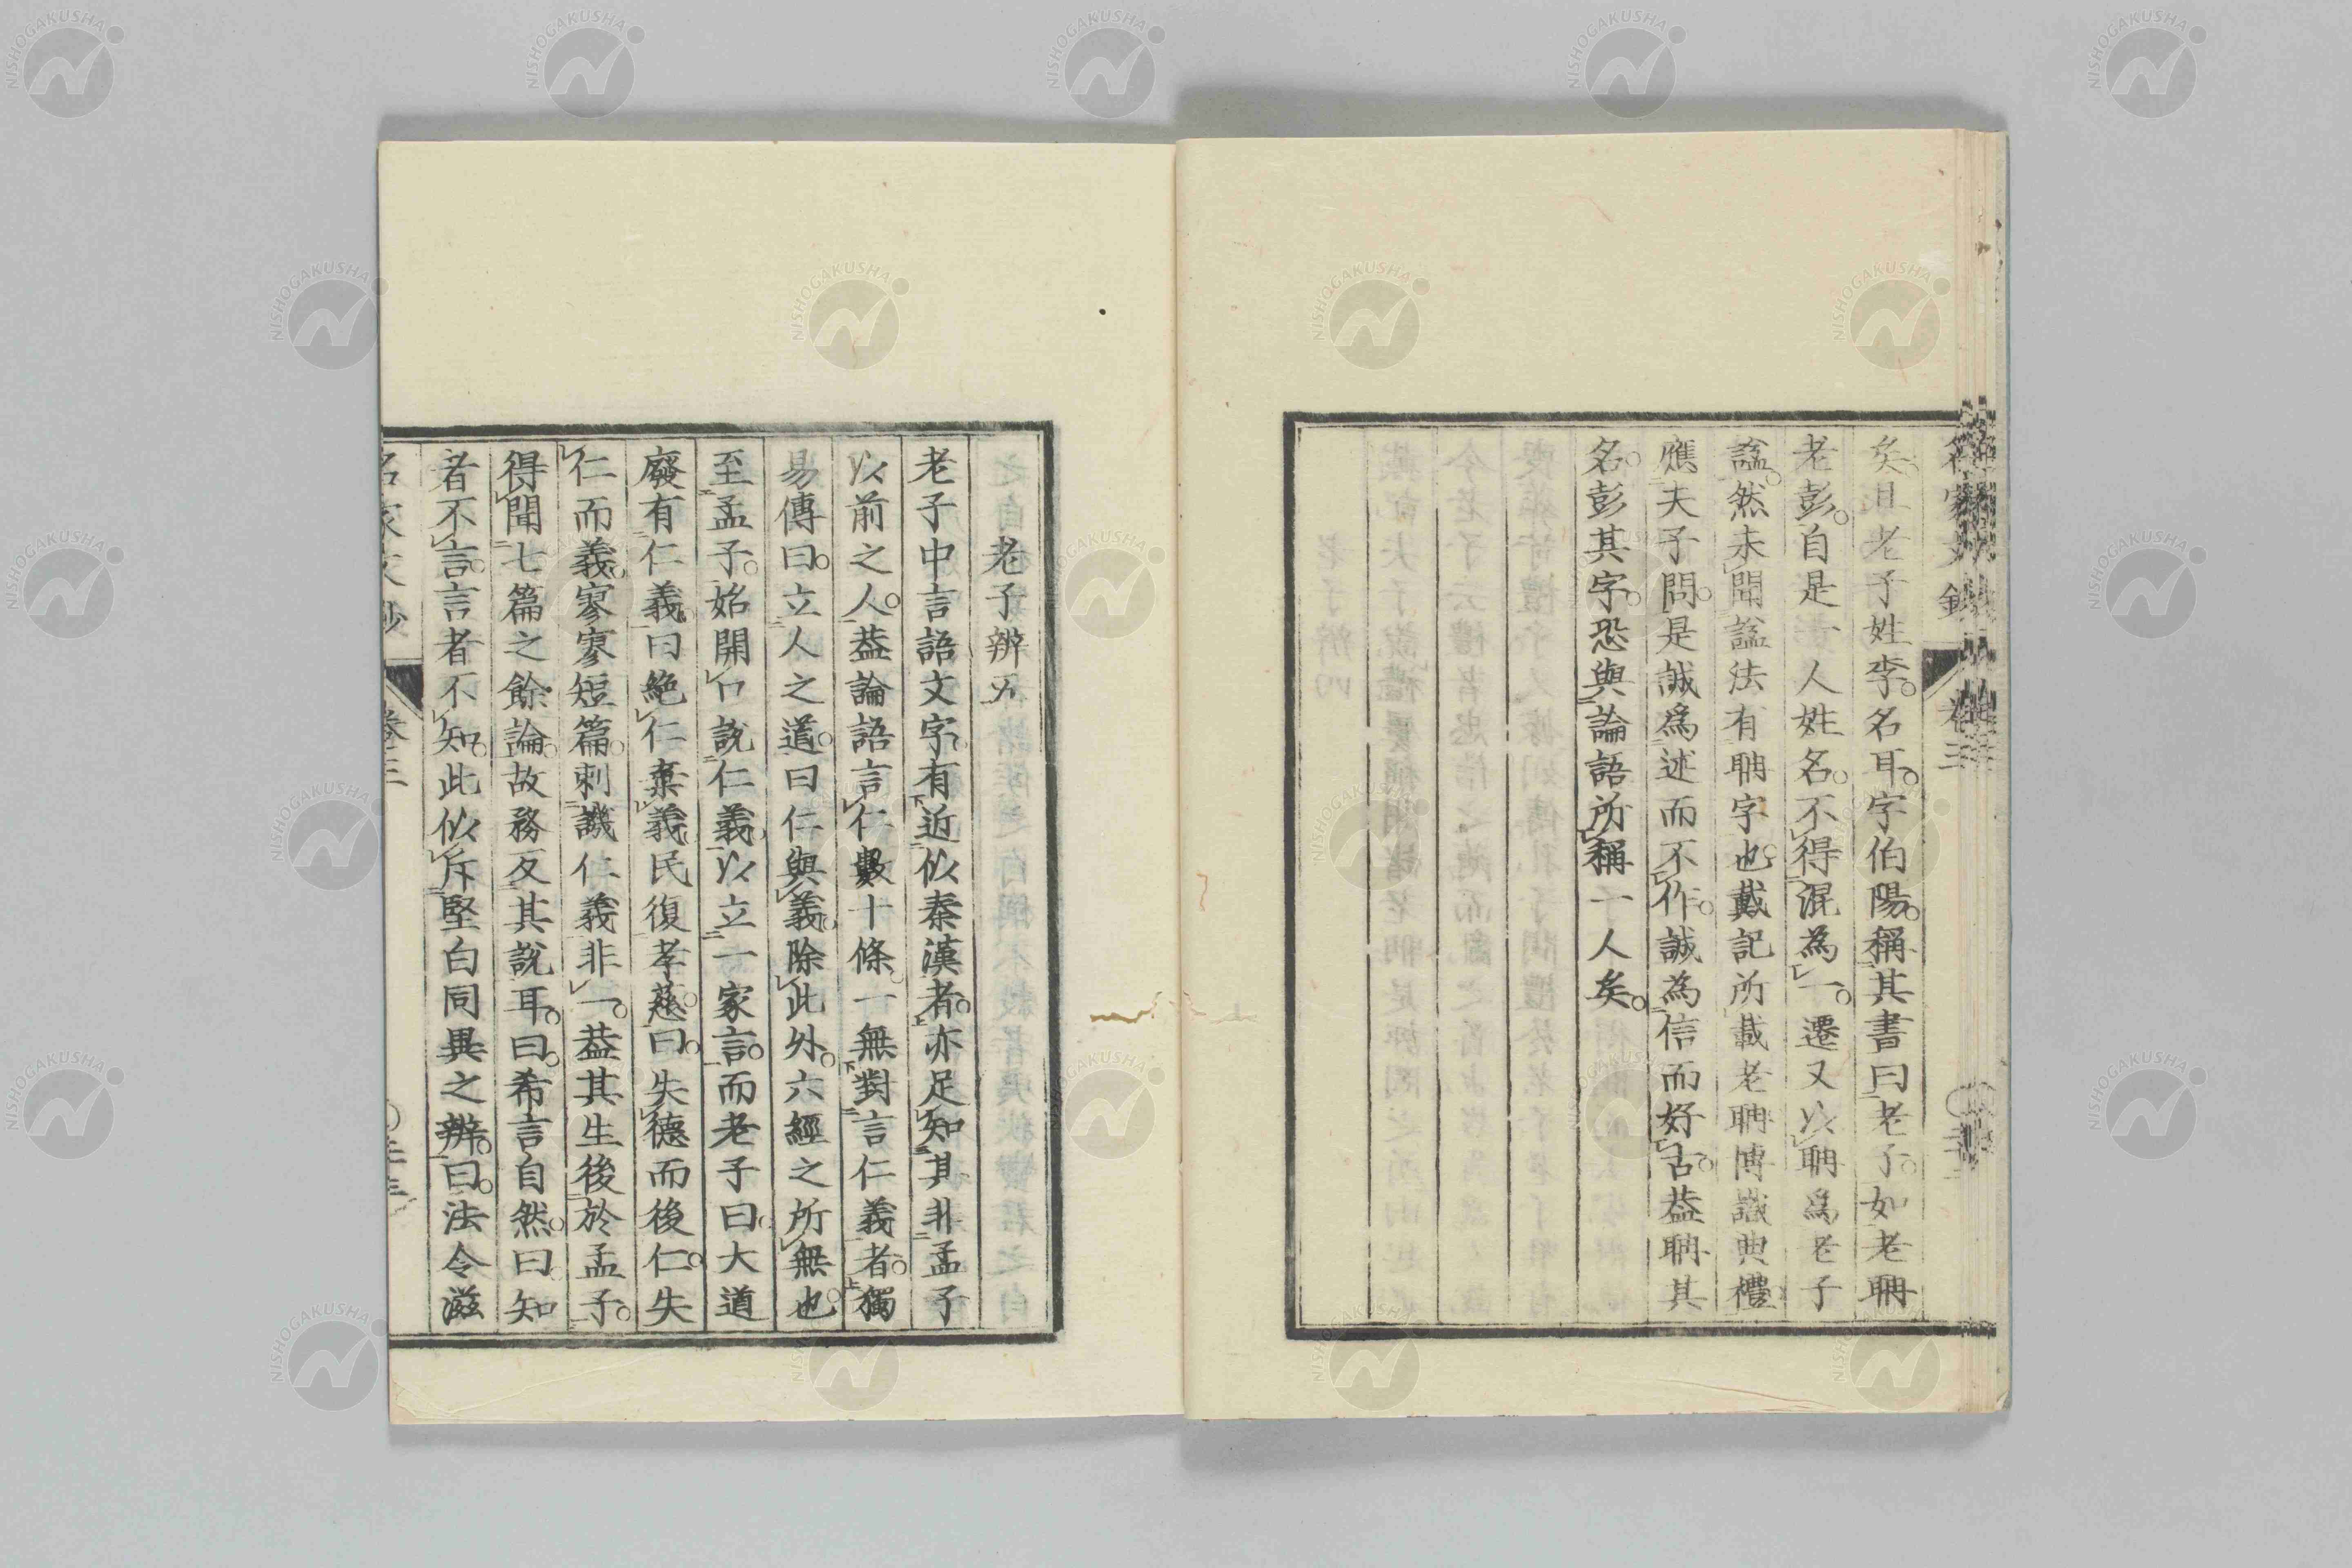 矣且老子姓李名耳字伯陽稱其書曰老子如老聃
老彭自是一人姓名不得混為一遷又以聃爲老子
諡然未聞諡法有聃字也戴記所載老聃博識典禮
應夫子問是誠爲述而不作誠為信而好古葢聃其
名彭其字恐與論語所稱一人矣
老子辨五
老子中言語文字有近似秦漢者亦足知其非孟子
以前之人葢論語言仁數十條一無對言仁義者獨
易傳曰立人之道曰仁與義除此外六經之所無也
至孟子始開口說仁義以立一家言而老子曰大道
廢有仁義曰絶仁棄義民復孝慈曰失德而後仁失
仁而義寥寥短篇刺譏仁義非一葢其生後於孟子
得聞七篇之餘論故務反其說耳曰希言自然曰知
者不言言者不知此似斥堅白同異之辨曰法令滋
卷三
NISHOGAKUSHA